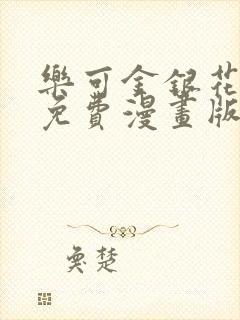 樂可金銀花
免費漫畫版
奐楚